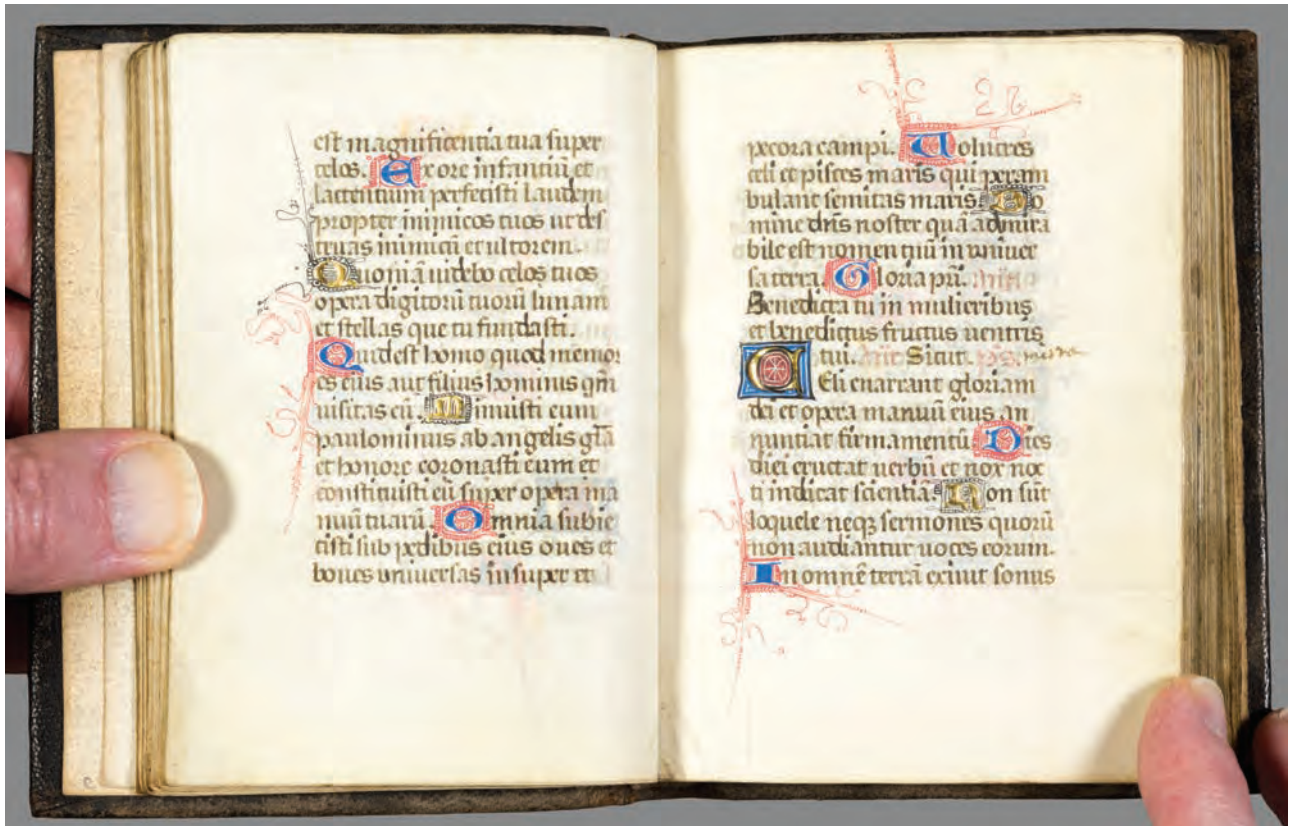 est magnificentia tua super
celos. Ex ore infantiũ et
lactentium perfecisti laudem
propter inimicos tuos ut des
truas inimicũ et ultorem.
Quoniã uidebo celos tuos
opera digitorũ tuorũ lunam
et stellas que tu fundasti.
Quid est homo quod memor
es eius aut filius hominis qm̃
uisitas eũ. Minuisti eum
paulominus ab angelis glã
et honore coronasti eum et
constituisti eũ super opera ma
nuũ tuarũ. Omnia subie
cisti sub pedibus eius oues et
boues uniuersas insuper et
pecora campi. Uolucres
celi et pisces maris qui peram
bulant semitas maris. Do
mine dñs noster quã admira
bile est nomen tuũ in uniuer
sa terra. Gloria pri.
Benedicta tu in mulieribus
et benedictus fructus uentris
tui. Sicut
Celi enarrant gloriam
dei et opera manuũ eius an
nuntiat firmamentũ. Dies
diei eructat uerbũ et nox noc
ti indicat scientiã. Non sũt
loquele neqʒ sermones quorũ
non audiantur uoces eorum.
In omnẽ terrã exiuit sonus